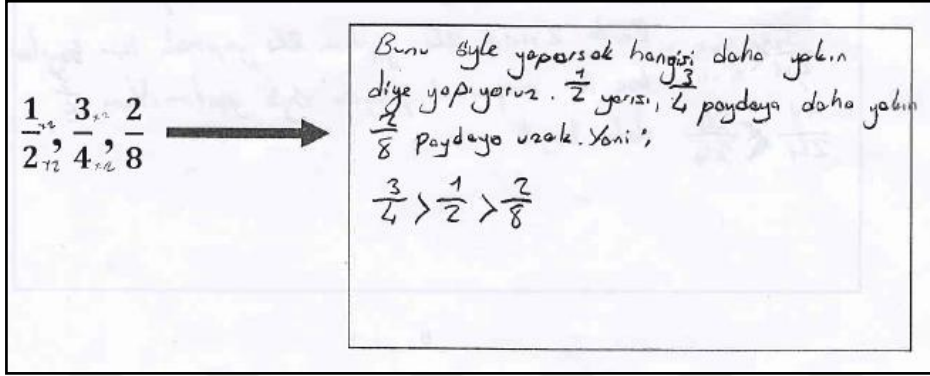 1/2, 3/4, 2/8
Bunu şyle yaparsak hangisi daha yakın
diye yapıyoruz. 1/2 yarısı, 3/4 paydaya daha yakın
2/8 paydaya uzak. Yani;
3/4 > 1/2 > 2/8